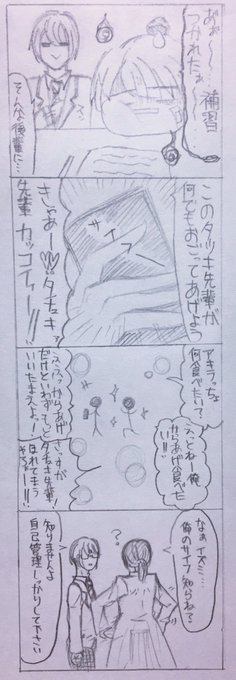 あぁ〜…補習
つかれたぁ〜
そんな後輩に…
このタツキ先輩が
何でもおごってあげよう
サイフ
きゃあー♡タツキ
先輩
カッコイィー!!
アナタっち
何食べたい?
えっとねー俺
からあげ食べた
い!!
からあげ
だけといわずもっと
いいたまえよっ!
さっすが
タツキ先輩!
ほれてまう
なぁイズミ…
俺のサイフ知らね?
?
知りませんよ
自己管理しっかりして下さい